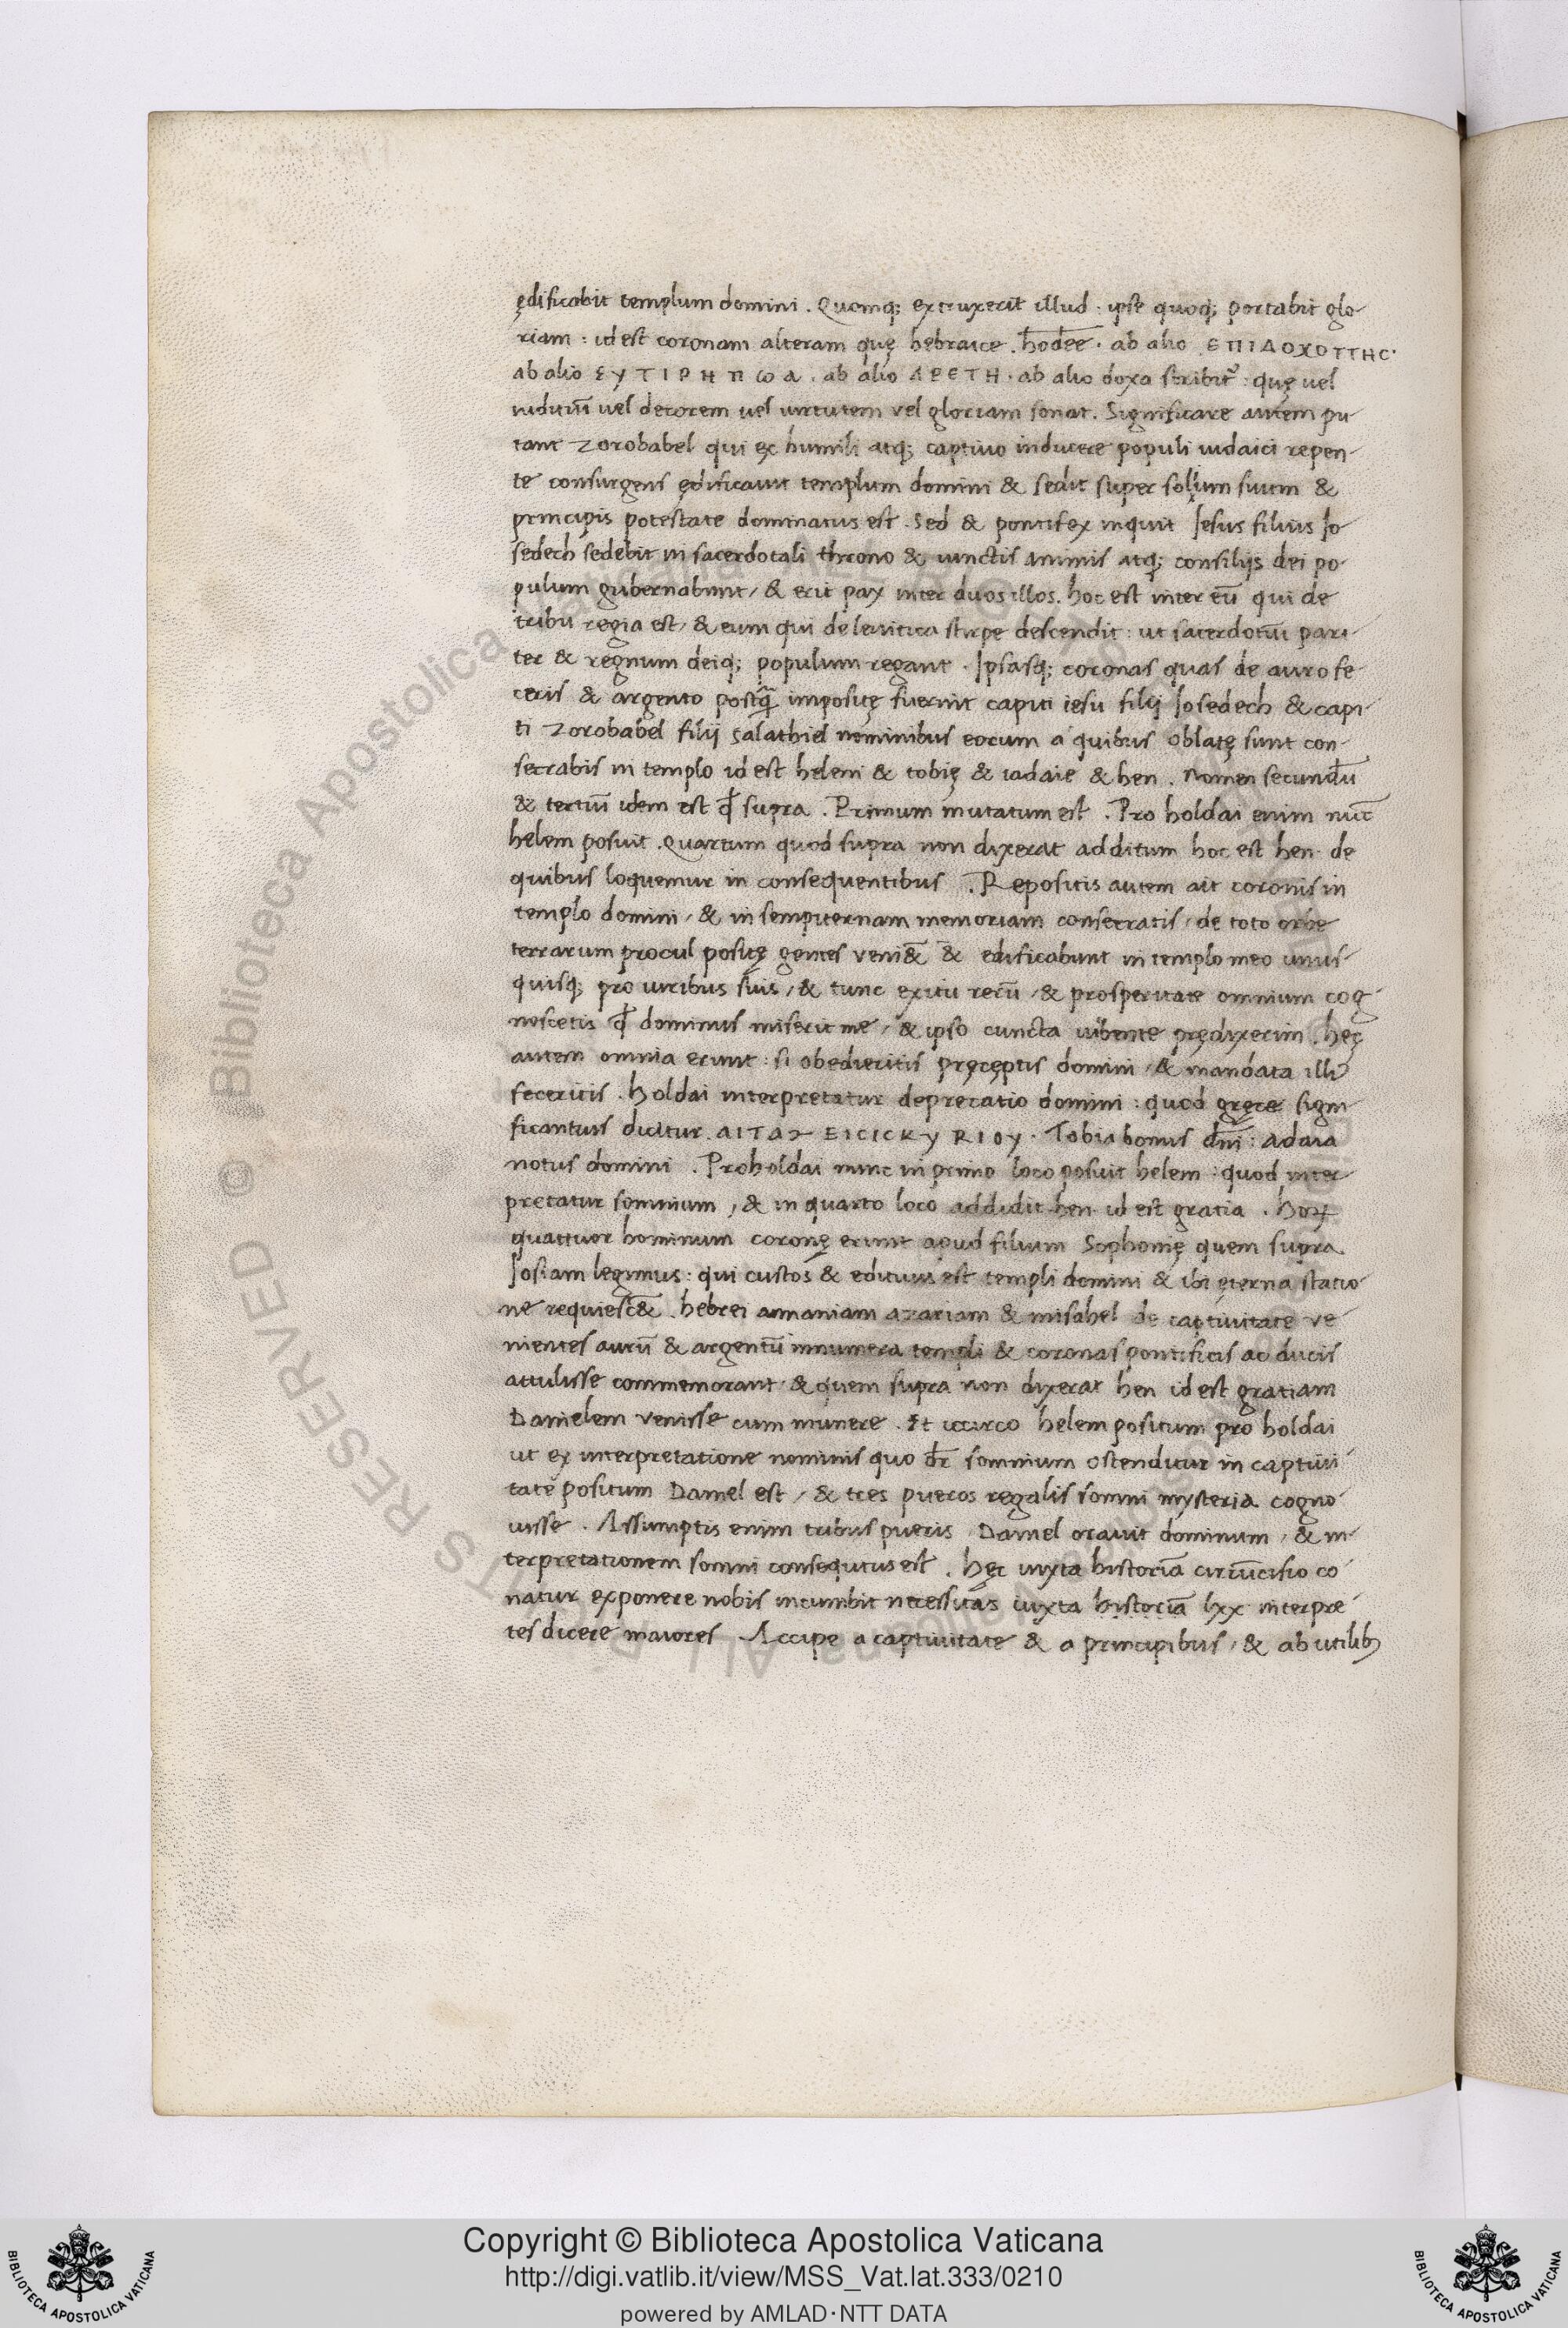 ędificabit templum domini . Quomq; extruxerit illud : ipse quoq; portabit glo-
riam : id est coronam alteram quę hebraice . hodee . ab alio ΕΠΙΔΟΧΟΤΤΗC .
ab alio ΕΥΤΙΡΗΠωα . ab alio ΑΡΕΤΗ . ab alio doxa scribit᷑ : quę uel
uel decorem uel uirtutem vel gloriam sonat . Significare autem pu-
tant Zorobabel qui ex humili atq; captiuo in ducere populi iudaici repen-
te consurgens ędificauit templum domini & sedit super solium suum &
principis potestate dominatus est . Sed & pontifex inquit Jesus filius Jo-
sedech sedebit in sacerdotali throno & iunctis animis atq; consilijs dei po-
pulum gubernabunt / & erit pax inter duos illos . hoc est inter eū qui de
tribu regia est / & eum qui de leuitica stirpe descendit : ut sacerdotiū pari-
ter & regnum deiq; populum regant . Ipsasq; coronas quas de auro fe-
ceris & argento postq̄ impositę fuerint capiti iesu filij Josedech & capi-
ti Zorobabel filij salathiel nominibus eorum a quibus oblatę sunt con-
secrabis in templo id est heleni & tobię & iadaie & hen . Nomen secundū
& tertiū idem est qđ supra . Primum mutatum est . Pro holdai enim nūc
helem posuit . Quartum quod supra non dixerat additum hoc est hen . de
quibus loquemur in consequentibus . Repositis autem ait coronis in
templo domini / & in sempiternam memoriam consecratis / de toto orbe
terrarum procul positę gentes veni&̄ & edificabunt in templo meo unus-
quisq; pro uiribus suis / & tunc exitu rerū / & prosperitate omnium cog-
noscetis qđ dominus miserit me / & ipso cuncta iubente prędixerim . hęc
autem omnia erunt : si obedieritis pręcęptis domini / & mandata illi᷒
feceritis . Holdai interpretatur deprecatio domini : quod gręce signi-
ficantius dicitur . ΕΙCΙCΚΥRΙΟΥ . Tobia bonus dn̄i : adaia
notus domini . Pro holdai nunc in primo loco posuit helem : quod inter-
pretatur somnium , & in quarto loco addidit hen id est gratia . Hoꝝ
quattuor hominum coronę erunt apud filium Sophonię quem supra
Josiam legimus : qui custos & edituus est templi domini & ibi ęterna statio-
ne requiesc&̄ . hebrei annaniam azariam & misahel de captiuitate ve-
nientes aurū & argentū in munera templi & coronas pontificis ac ducis
attulisse commemorant . & quem supra non dixerat hen id est gratiam
Danielem venisse cum munere . Et iccirco helem positum pro holdai
ut ex interpretatione nominis quo dr̄ somnium ostenditur in captiui-
tate positum Daniel est / & tres pueros regalis somni mysteria cogno-
uisse . Assumptis enim tribus pueris Daniel orauit dominum / & in-
terpretationem somni consequtus est . Hęc iuxta historiā circūcisio co-
natur exponere nobis incumbit necessitas iuxta historiā lxx interpre-
tes dicere maiores . Accipe a captiuitate & a principibus / & ab utilib3
© Biblioteca Apostolica Vaticana ALL RIGHTS RESERVED
Copyright © Biblioteca Apostolica Vaticana
http://digi.vatlib.it/view/MSS_Vat.lat.333/0210
powered by AMLAD·NTT DATA
BIBLIOTECA APOSTOLICA VATICANA
BIBLIOTECA APOSTOLICA VATICANA